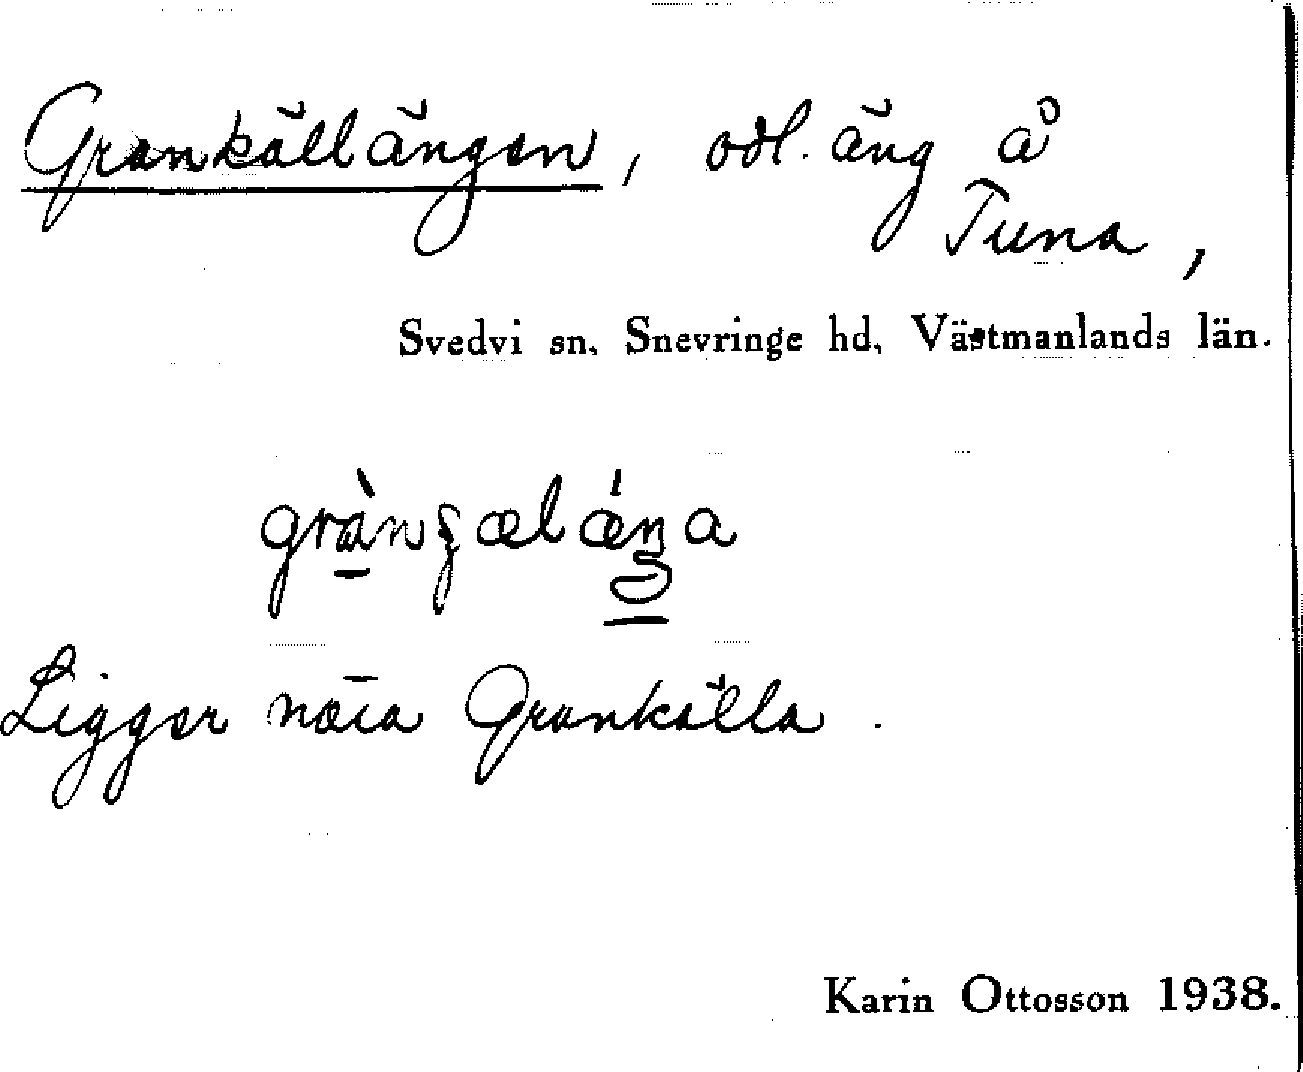 Grankällängen, odl. äng å
Tuna,
Svedvi sn, Snevringe hd, Västmanlands län.
Ligger nära Grankälla.
Karin Ottosson 1938.